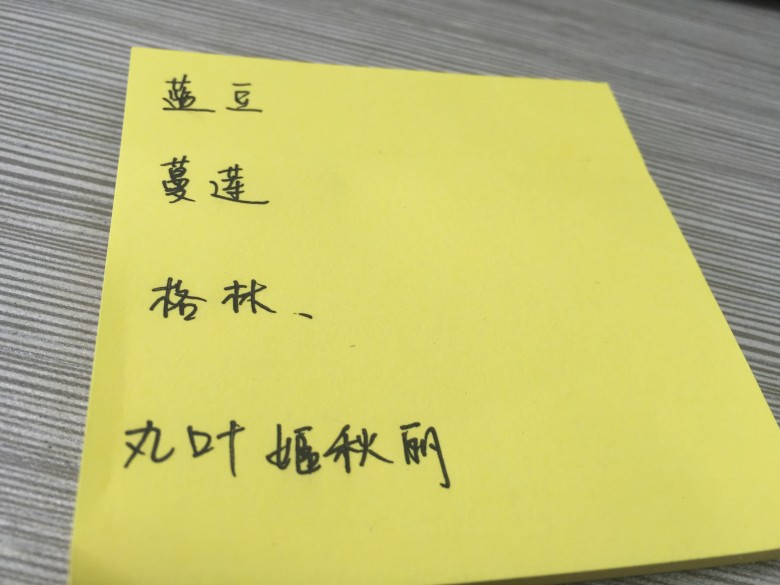 蓝豆
蔓莲
格林、
丸叶姬秋丽